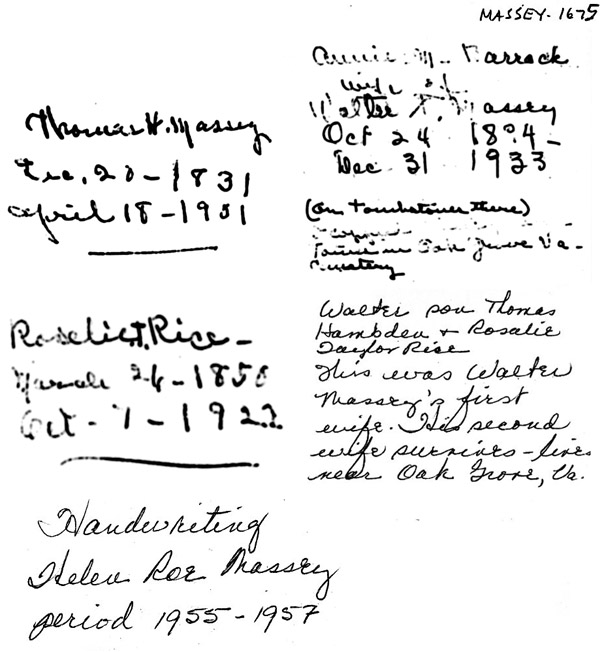 MASSEY-1675
Thomas H. Massey
Dec. 20-1831
April 18-1901
Rosalie T. Rice-
March 26-1850
Oct-7-1922
Annie M. Marrack
wife of
Walter T. Massey
Oct 24
Dec 31 1933
(on tombstones there)
Oak Grove Va-
Cemetery
Walter son Thomas
Hambden + Rosalie
Taylor Rice
This was Walter
Massey's first
wife. His second
wife survives-lives
near Oak Grove, Va.
Handwriting
Helen Roe Massey
period 1955-1957